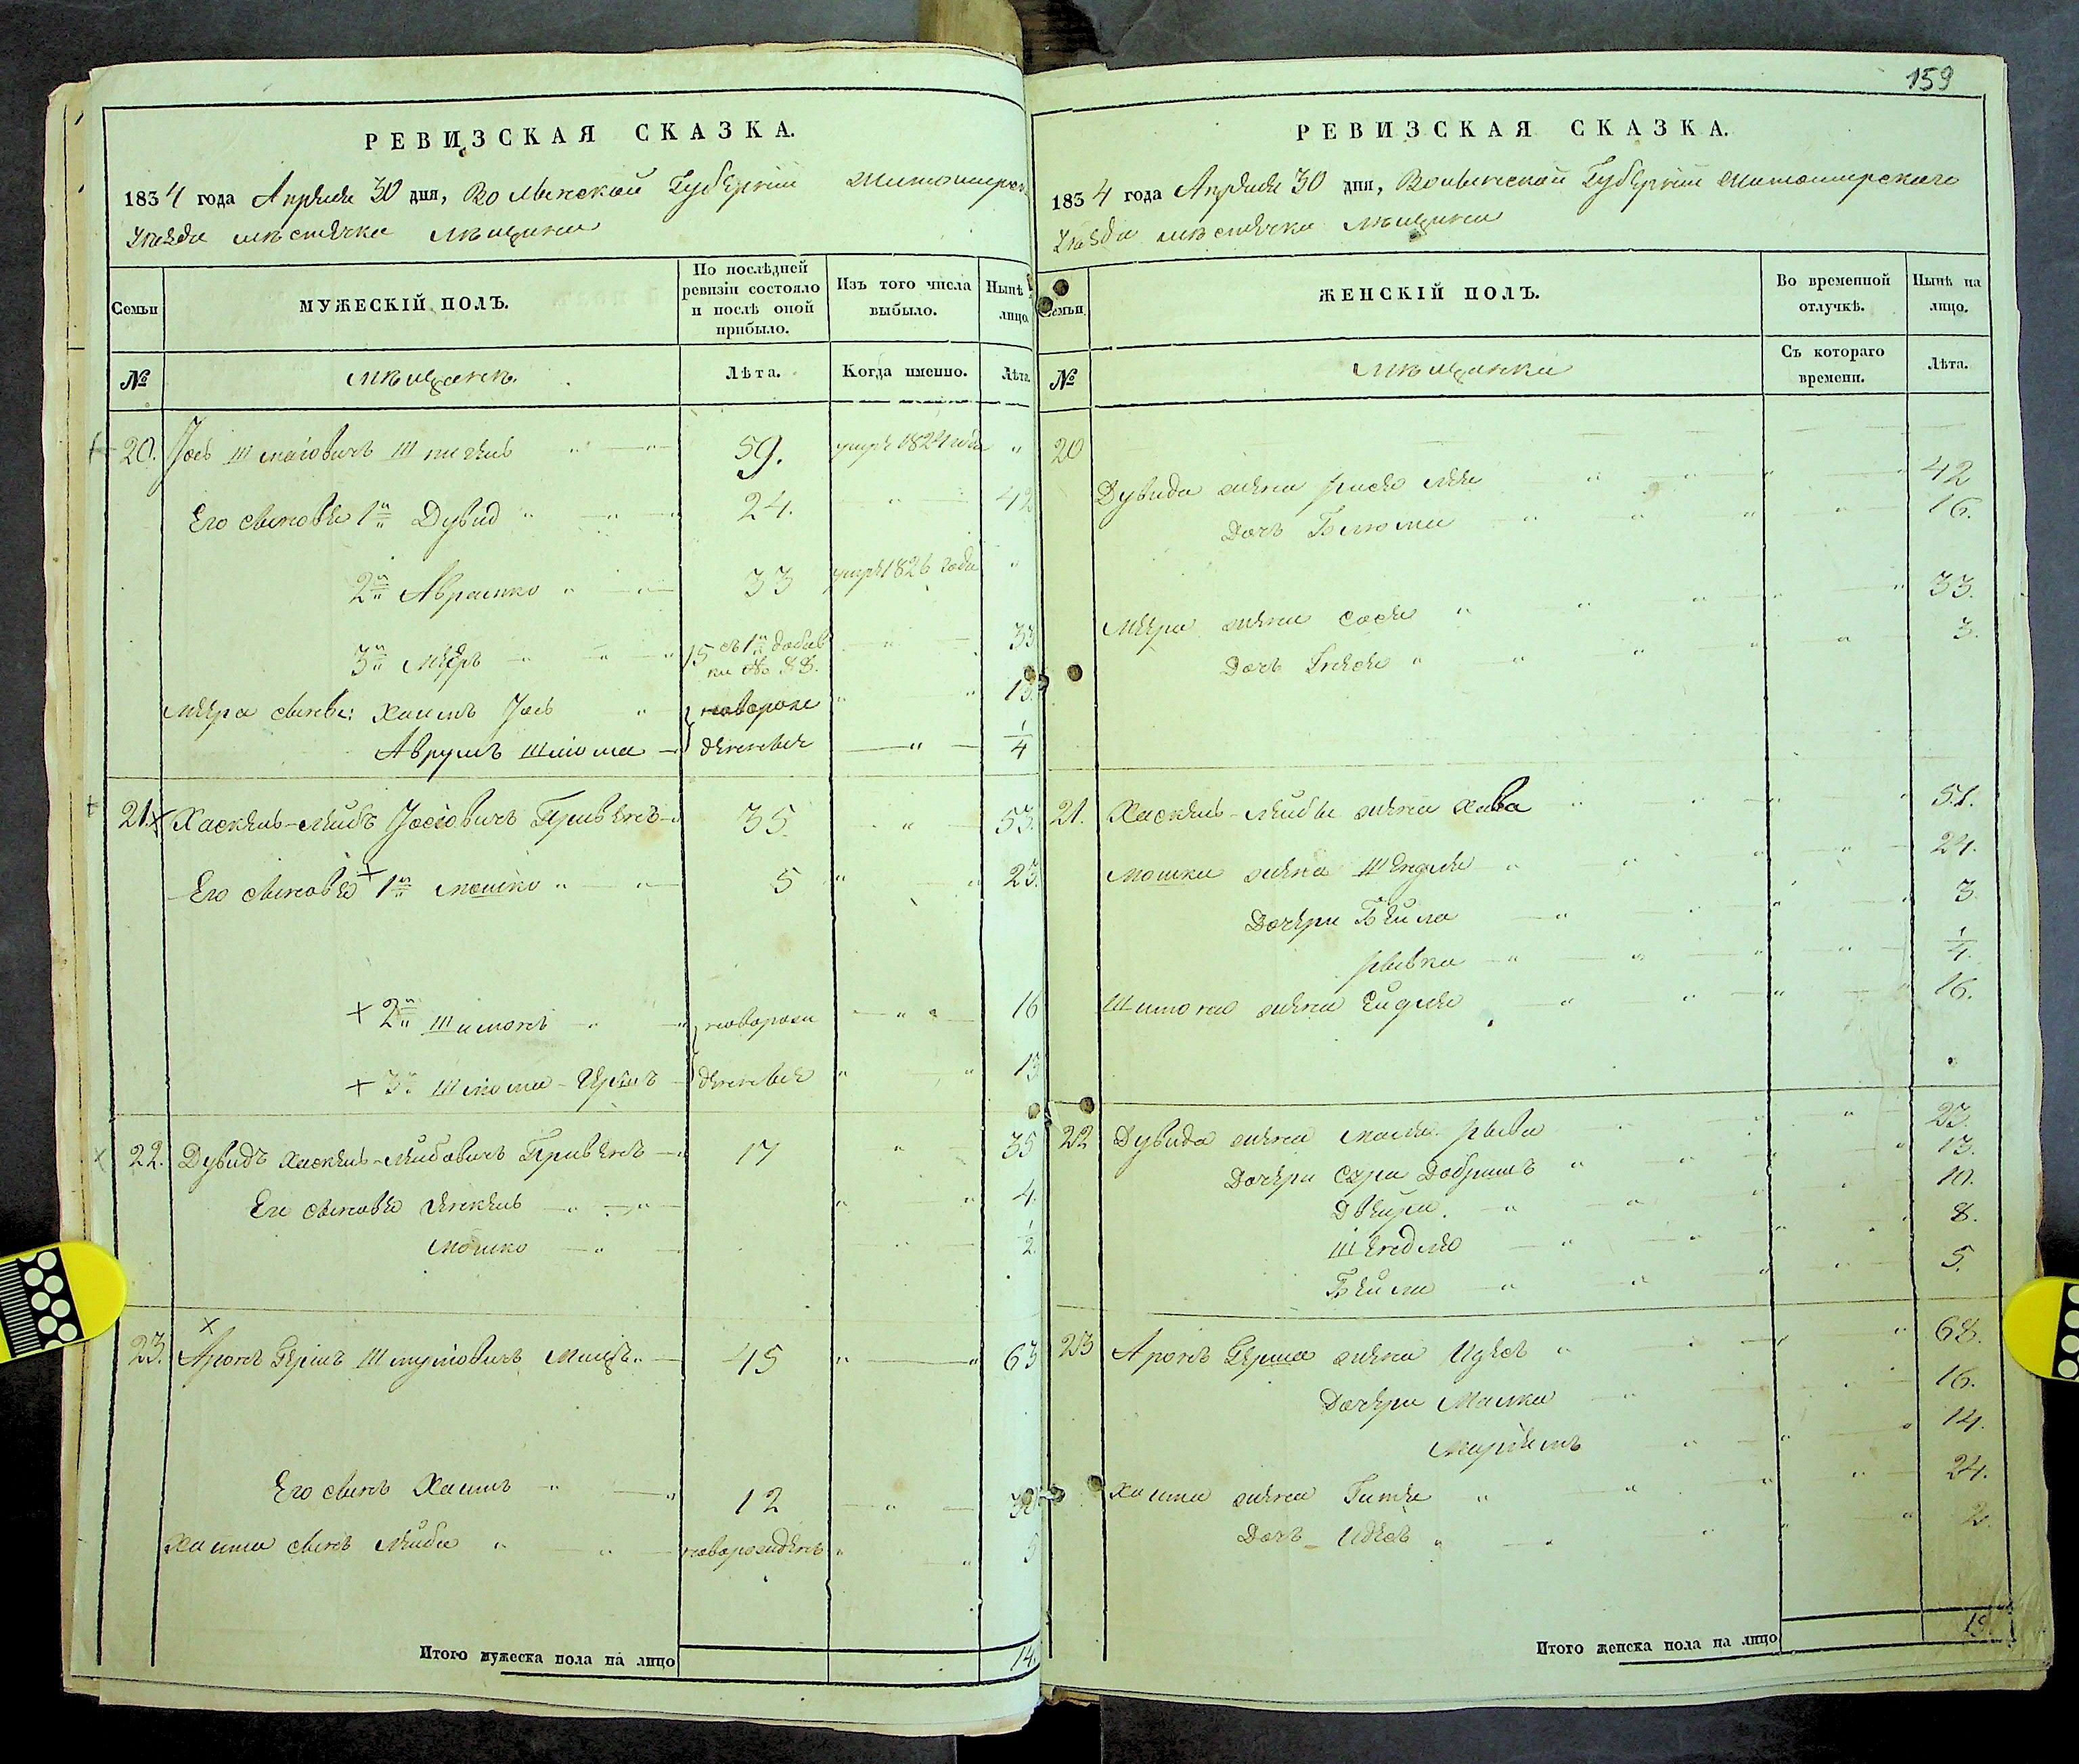 РЕВИЗСКАЯ СКАЗКА.
1834 года Апреля 30 дня, Волынской Губернии Житомирск
Уезда местечка
Семьи
МУЖЕСКІЙ ПОЛЪ.
По послѣдней ревизіи состояло и послѣ оной прибыло.
Изъ того числа выбыло.
Нынѣ лицо.
№
Мѣщанъ.
Лѣта.
Когда именно.
Лѣта.
20. Іось 59. умре 1824 года "
Его сыновья 1й Дувид " 24. " 42
2й Аврамко " 33 умре 1826 года "
3й Меер " 15 33
Меера сыновья: Хаимъ Іось " новорож " 13.
Аврумъ Шлома денные " 1/4
21. Хаскель-Лейбъ Іосіовичъ 35. " 53.
Его сыновья 1й Мошко " 5 " 23.
2й Шимонъ " новорож " 16
3й Шлома-Герш денные " 13
22. Дувидъ Хаскель-Лейбовичъ 17 " 35
Его сыновья Янкель " 4.
Мошко " 1/2.
23. Аронъ Гершъ 45 " 63
Его сынъ Хаимъ " 12 " 30
Хаима сынъ Лейба " новорожденъ " 5
Итого мужеска пола на лицо 14.
159
РЕВИЗСКАЯ СКАЗКА.
1834 года Апреля 30 дня, Волынской Губернии Житомирскаго
Уезда местечка
Семьи
ЖЕНСКІЙ ПОЛЪ.
Во временной отлучкѣ.
Нынѣ на лицо.
№
Мѣщанки
Съ котораго времени.
Лѣта.
20
Дувида жена 42
Дочь Блюма 16.
Меера жена Сося " 33.
Дочь " 3.
21. Хаскель-Лейбы жена Хава 51.
Мошки жена Шендля 24.
Дочери Бейла 3.
Рывка 1/4.
Шимона жена Ейдля 16.
22 Дувида жена Рыва 23.
Дочери Сура Добришъ 13.
Двейра. 10.
Шендля 8.
Бейла 5.
23 Аронъ Герша жена Идесъ 68.
Дочери Малка 16.
Маріемъ 14.
Хаима жена Гитля 24.
Дочь Идесъ 2.
Итого женска пола на лицо 19.